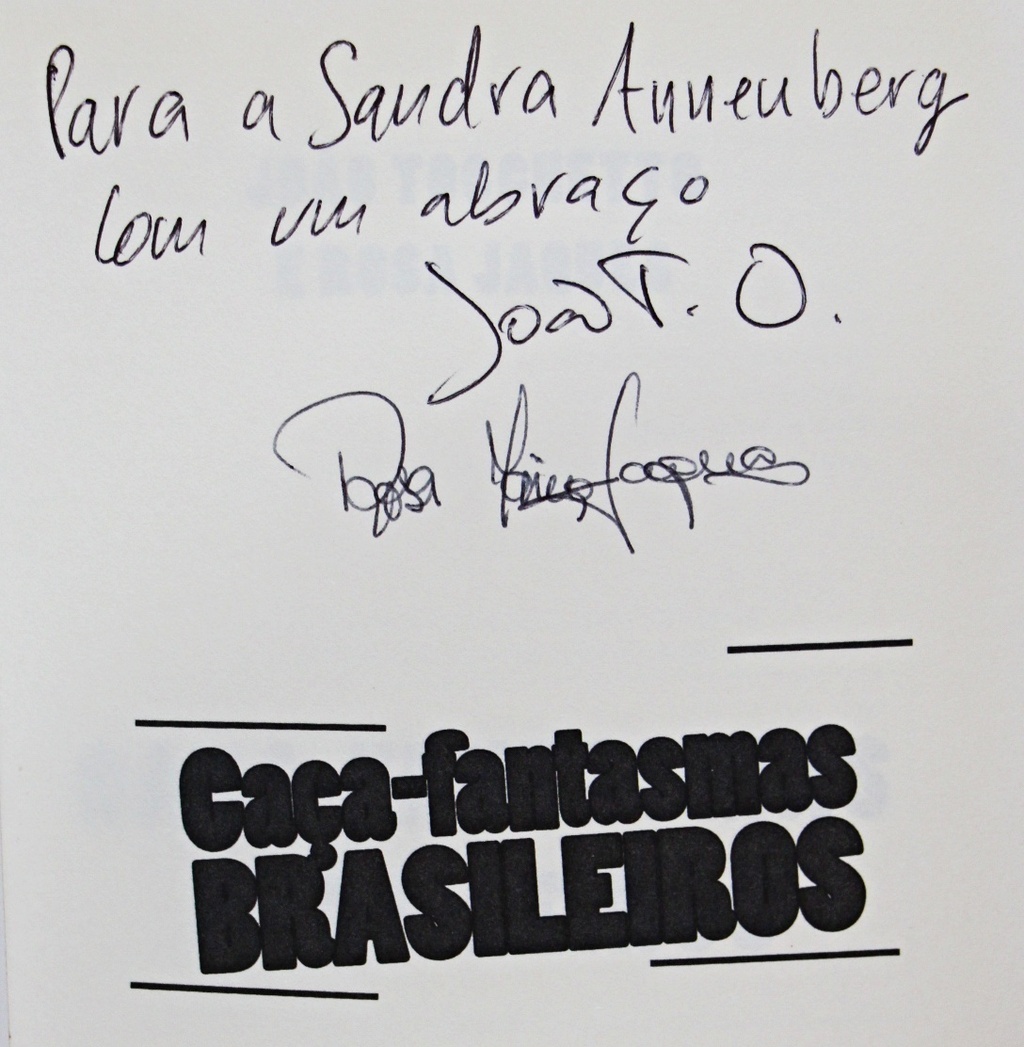 Para a Sandra Annenberg
com um abraço
João T. O.
Rosa Maria Jaques
Caça-fantasmas
BRASILEIROS